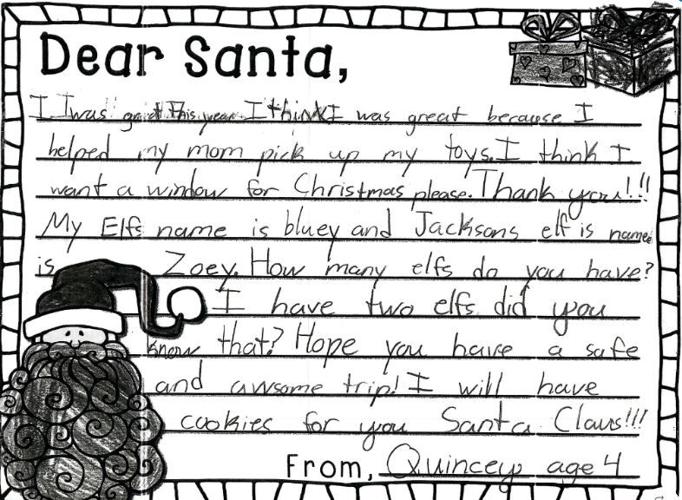 Dear Santa,
I I was great This year. I think I was great because I
helped my mom pick up my toys. I think I
want a window for Christmas please. Thank you!!!
My Elfs name is bluey and Jacksons elf is name
is Zoey. How many elfs do you have?
I have two elfs did you
know that? Hope you have a safe
and awsome trip! I will have
cookies for you Santa Claus!!!
From, Quincey age 4